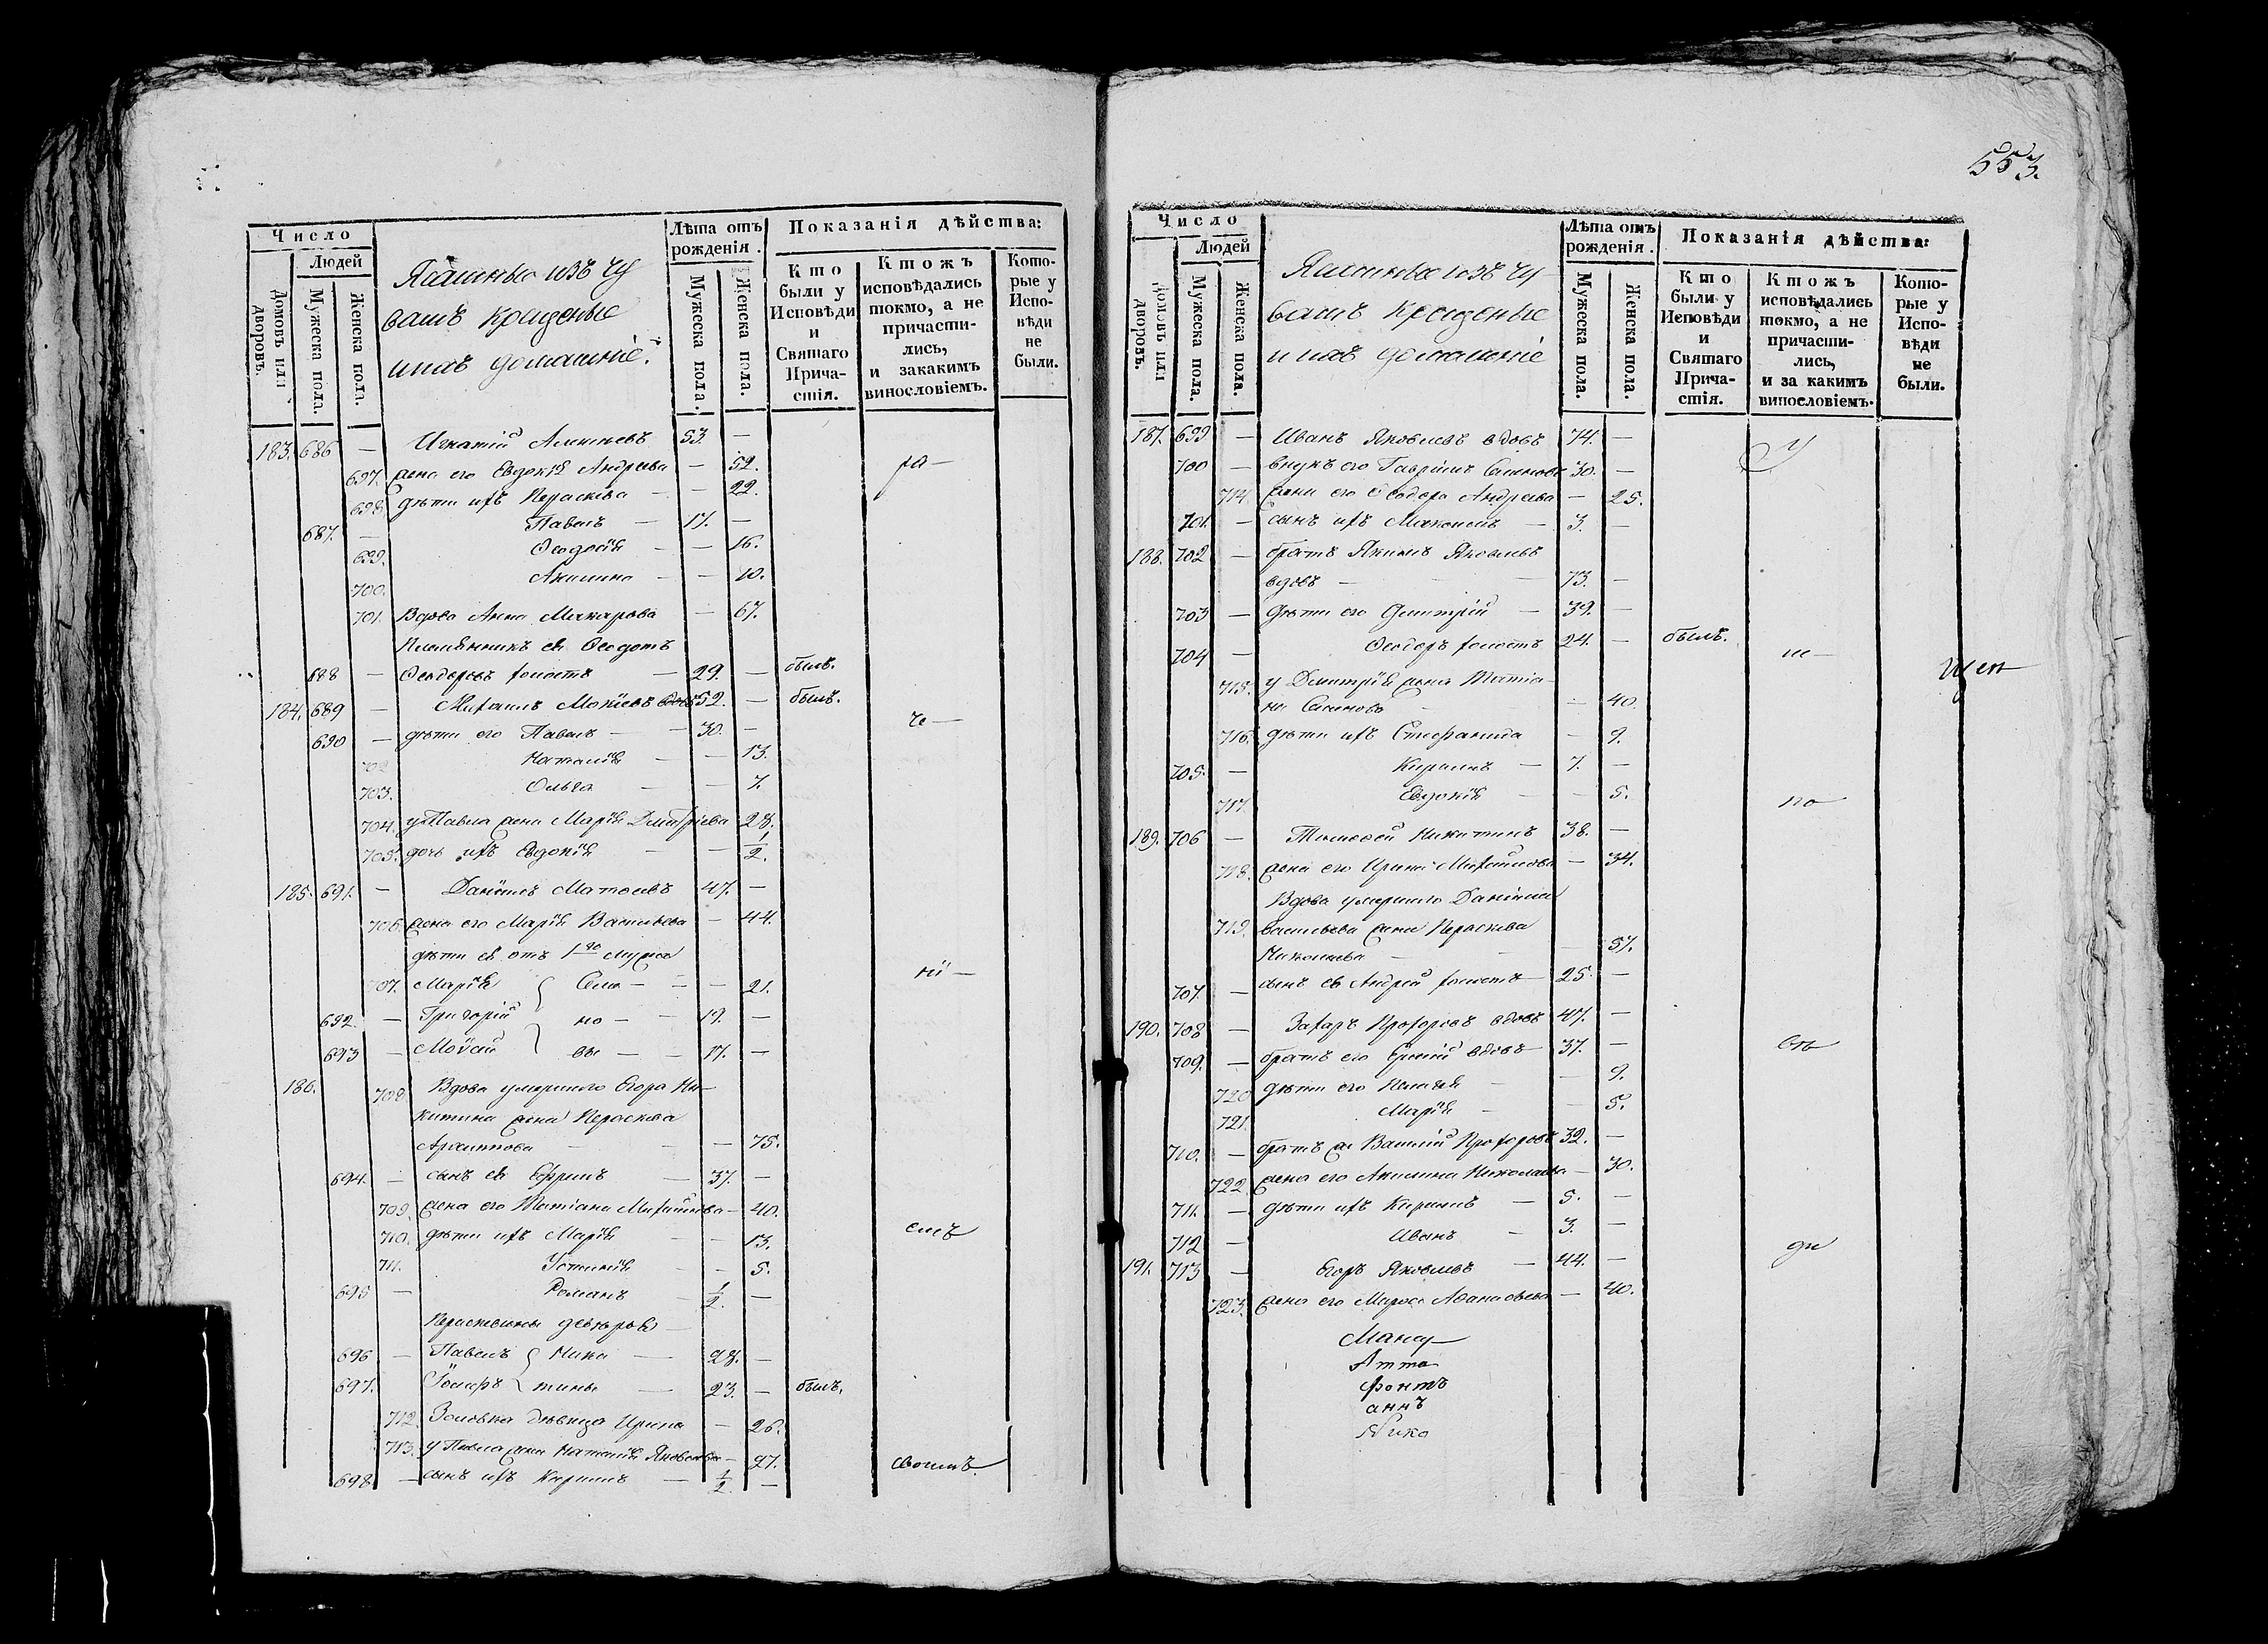 553.
Число
Людей
Домовъ или дворовъ.
Мужеска пола.
Женска пола.
Ясашные изъ чу
вашъ крещеные
и ихъ домашніе.
Лѣта отъ рожденія.
Мужеска пола.
Женска пола.
Показанія дѣйства:
Кто были у Исповѣди и Святаго Причастія.
Ктожъ исповѣдались токмо, а не причастились, и закакимъ винословіемъ.
Которые у Исповѣди не были.
183. 686 — Игнатій 53. —
697. жена его Евдокія Андреева — 52.
698. дѣти ихъ Пераскева — 22.
687. — Павелъ — 17. —
699. Ѳеодосія — 16.
700. Акилина — 10.
701. Вдова Анна Макарова — 67.
Племянникъ ея Ѳеодотъ
688 — Ѳеодоровъ холостъ — 29. — былъ.
184. 689 — Михаилъ Мокіевъ вдовъ 52. — былъ.
690 — дѣти его Павелъ — 30. —
702 Наталія — 13.
703. Ольга — 7.
704. у Павла жена Марія Дмитріева 28.
705. дочь ихъ Евдокія — 1/2.
185. 691. — Даніилъ 47. —
706. жена его Марія Васильева — 44.
дѣти ея отъ 1го мужа
707. Марія Семе — 21.
692. — Григорій но — 19. —
693 — Моѵсей вы — 17. —
186. 708. Вдова умершаго Егора Ни-
китина жена Пераскева
Архиппова — 75.
694. — сынъ ея Ефремъ — 37. —
709. жена его Татіана Михайлова — 40.
710. дѣти ихъ Марія — 13.
711. Устинія — 5.
695 — Романъ — 1/2. —
Пераскевины деверья
696 — Павелъ Ники — 28. —
697. тины — 23. — былъ.
712. Золовка дѣвица Ирина — 26.
713. у Павла жена Наталія Яковлева — 27.
698 — сынъ ихъ Кирилъ — 1/2. —
ра —
че —
ні —
емъ
своимъ.
Число
Людей
Домовъ или дворовъ.
Мужеска пола.
Женска пола.
Ясашные изъ чу
вашъ крещеные
и ихъ домашніе
Лѣта отъ рожденія.
Мужеска пола.
Женска пола.
Показанія дѣйства:
Кто были у Исповѣди и Святаго Причастія.
Ктожъ исповѣдались токмо, а не причастились, и за какимъ винословіемъ.
Которые у Исповѣди не были.
187. 699 — Иванъ Яковлевъ вдовъ 74. — У
700 — внукъ его Гавріилъ Семеновъ 30. —
714. жена его Ѳеодора Андреева — 25.
701. — сынъ ихъ Максимъ — 3. —
188. 702 — братъ Якимъ Яковлевъ
вдовъ — 73. —
703 — дѣти его Дмитрій — 39. —
704 — Ѳеодоръ холостъ 24. — былъ.
715. у Дмитрія жена Татіа-
на Семенова — 40.
716. дѣти ихъ Стефанида — 9.
705. — Кирилъ — 7. —
717. Евдокія — 5.
189. 706 — Тимоѳей Никитинъ 38. —
718. жена его Ирина Михайлова — 34.
Вдова умершаго Даніила
719. Васильева жена Пераскева
Николаева — 57.
707. — сынъ ея Андрей холостъ — 25. —
190. 708 — Захаръ Прохоровъ вдовъ 47. —
709. — братъ его вдовъ — 37. —
720 дѣти его Пелагія — 9.
721. Марія — 5.
710. — братъ же Василій Прохоровъ 32. —
722. жена его Акилина Николаева — 30.
711. — дѣти ихъ Кирилъ — 5. —
712 — Иванъ — 3. —
191. 713 — Егоръ Яковлевъ — 44. —
723. жена его Марѳа Аѳанасьева — 40.
не —
по
съ
ди
щен